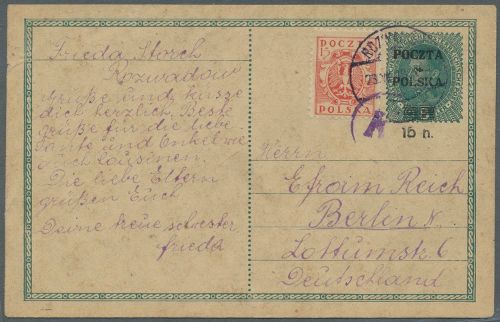 Frieda Storch
Rozwadow
Grüße und küsse
dich herzlich. Beste
grüße für die liebe
Tante und Onkel wie
auch Cousinen.
Die liebe Eltern
grüßen Euch
Deine treue schwester
frieda
POCZTA
15 F
POLSKA
ROZW
POCZTA
POLSKA
15 h.
Herrn
Efraim Reich
Berlin N.
Lottumstr. 6
Deutschland